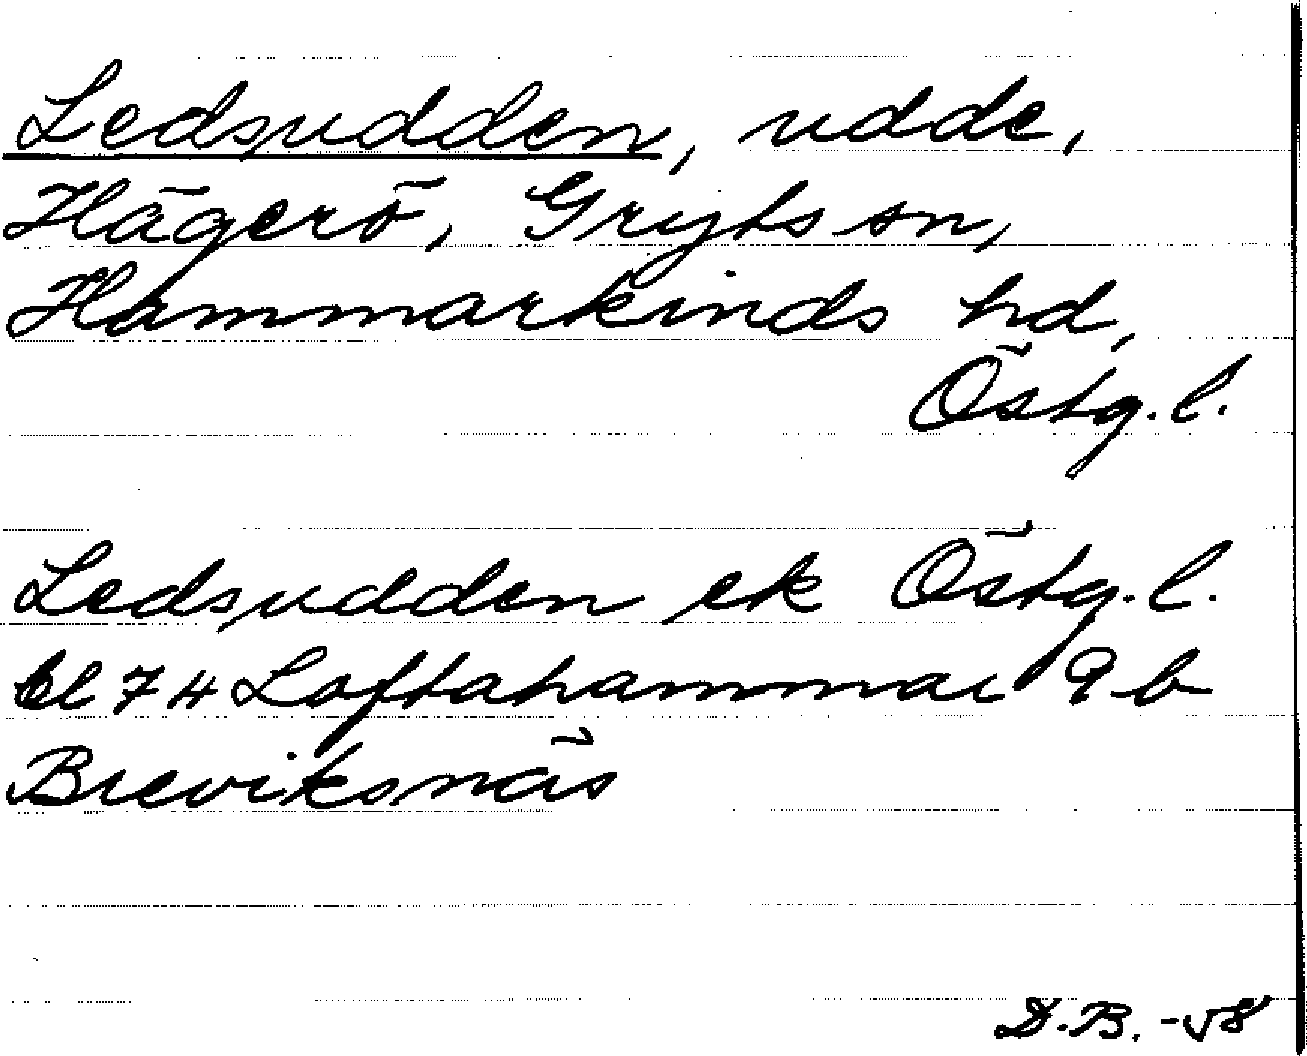 Ledsudden, udde,
Hägerö, Gryts sn,
Hammarkinds hd,
Östg. l.
Ledsudden ek Östg. l.
bl 74 Loftahammar 9 b
Breviksnäs
D.B. -58